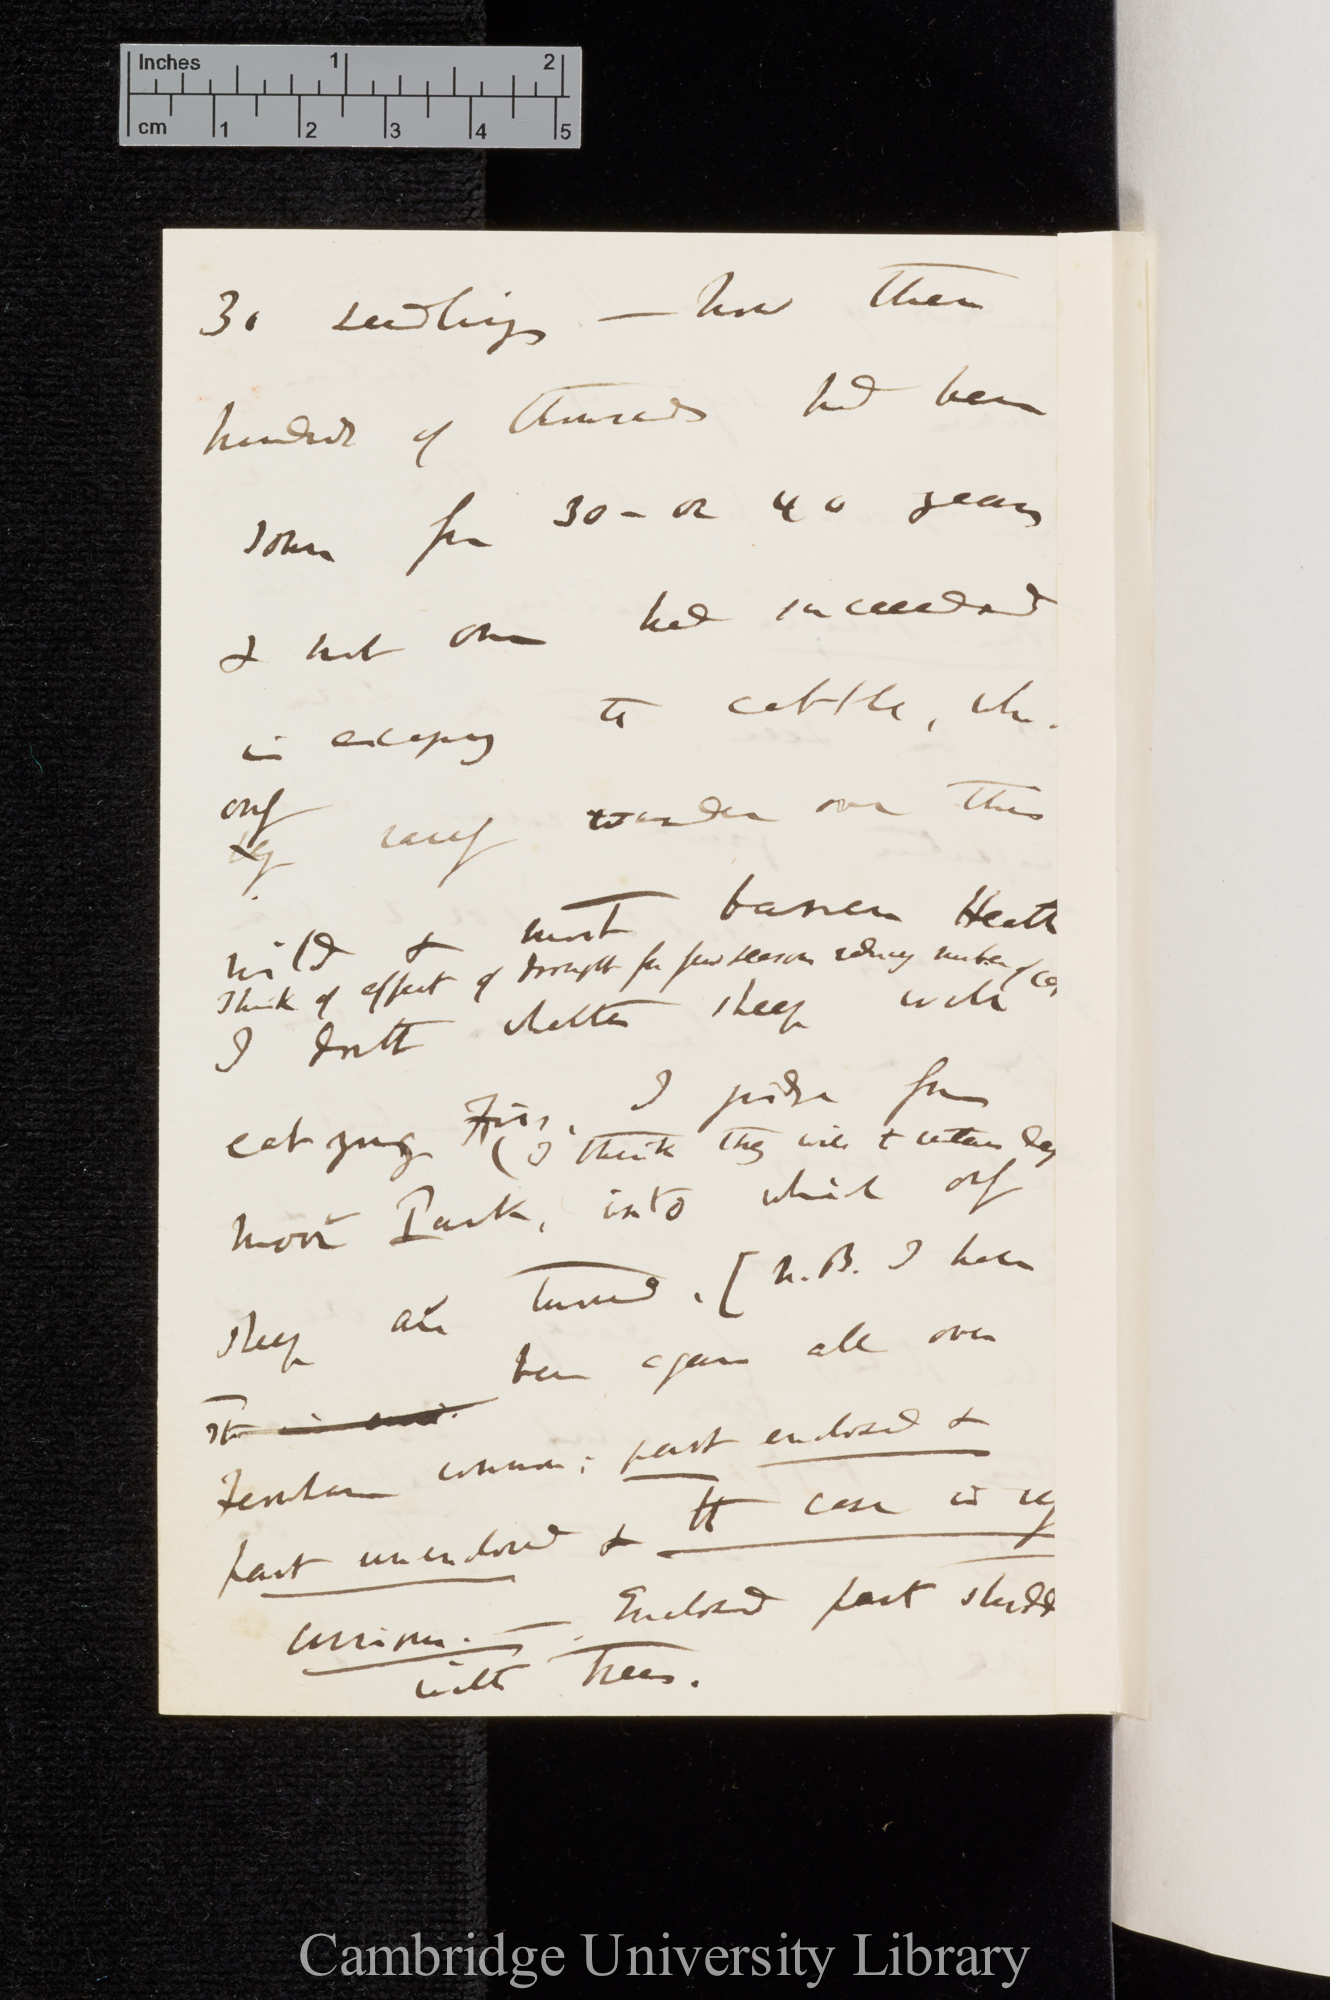 Inches 1 2
cm 1 2 3 4 5
30 seedlings — now there
hundreds of thousands had been
sown for 30 – or 40 years
& not one had succeeded
in escaping to cattle, wh.
only
rarely wander over this
wild & most barren Heath
Think of effect of drought for few seasons reducing number of
I doubt whether sheep will
eat young Firs. I judge from
(I think they will to certain deg
Moor Park, into which only
sheep are turned. [N.B. I have
been again all over
Farnham common; part enclosed &
part unenclosed & the case is vy
curious. — Enclosed part studd
with trees.
Cambridge University Library